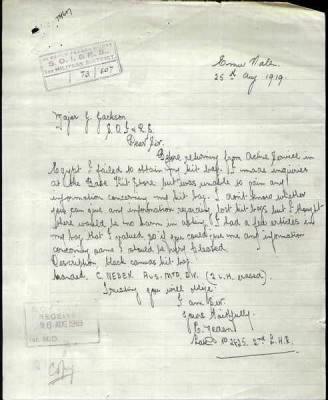 S.O.I. & R.S.
1ST MILITARY DISTRICT
73/607
25th Aug 1919.
Major J. Jackson
S.O.I & R.S.
Dear Sir.
Before returning from Active Service in
Egypt I failed to obtain my kit bag. I made inquiries
at the Base Kit Store but was unable to gain any
information concerning my kit bag. I don't know whether
you can give any information regarding lost kit bags but I thought
there would be no harm in asking. I had a few articles in
my bag that I valued so if you could give me any information
concerning same I should be highly pleased.
Description black canvas kit bag.
branded C. Aus. Mtd. Div. (2 L.H. erased).
Trusting you will oblige
I am Sir.
Yours Faithfully
No 2525. 2nd L.H.R.
RECEIVED
26 AUG 1919
1st M.D.
Copy